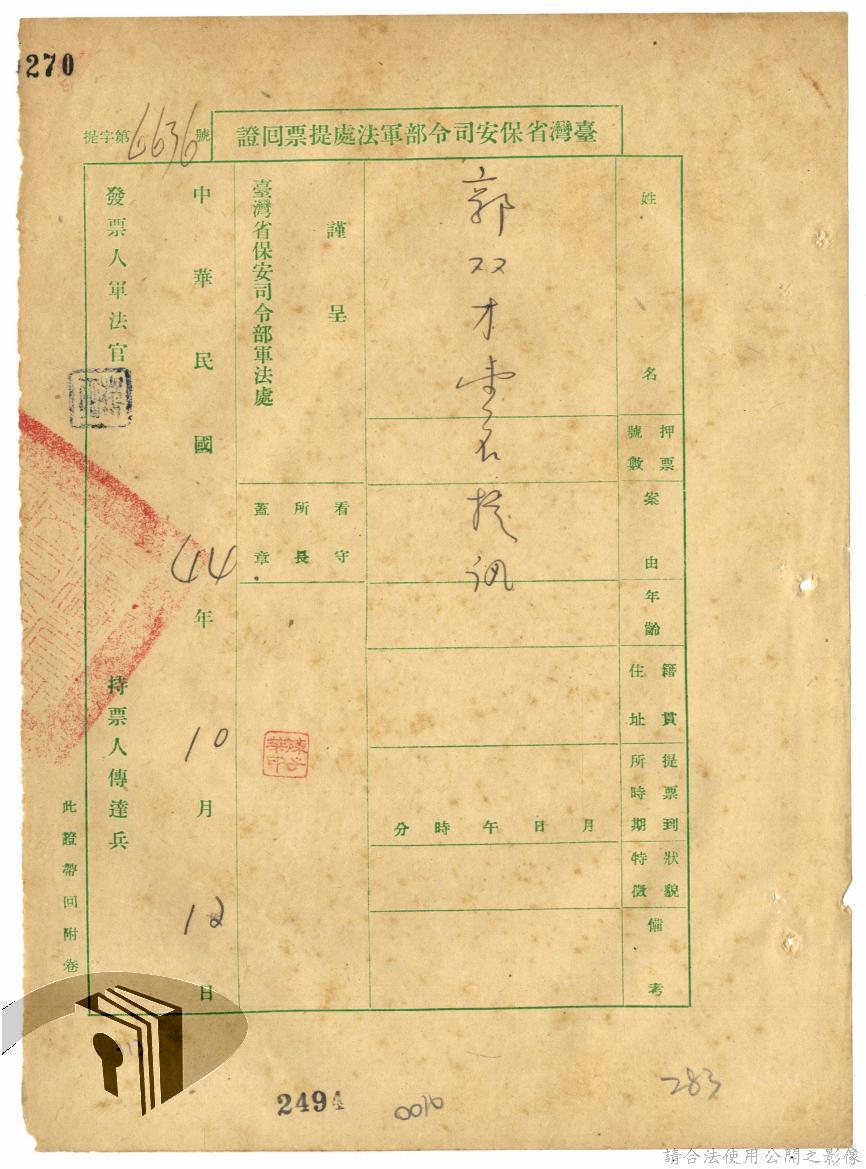 270
臺灣省保安司令部軍法處提票回證
提字第6636號
姓名
郭双才壹名提訊
押票號數
案由
年齡
籍貫住址
提票到所時期
月日午時分
狀貌特徵
備考
謹呈
臺灣省保安司令部軍法處
看守所長蓋章
中華民國44年10月12日
發票人軍法官
持票人傳達兵
此證帶回附卷
2494
0010
283
請合法使用公開之影像